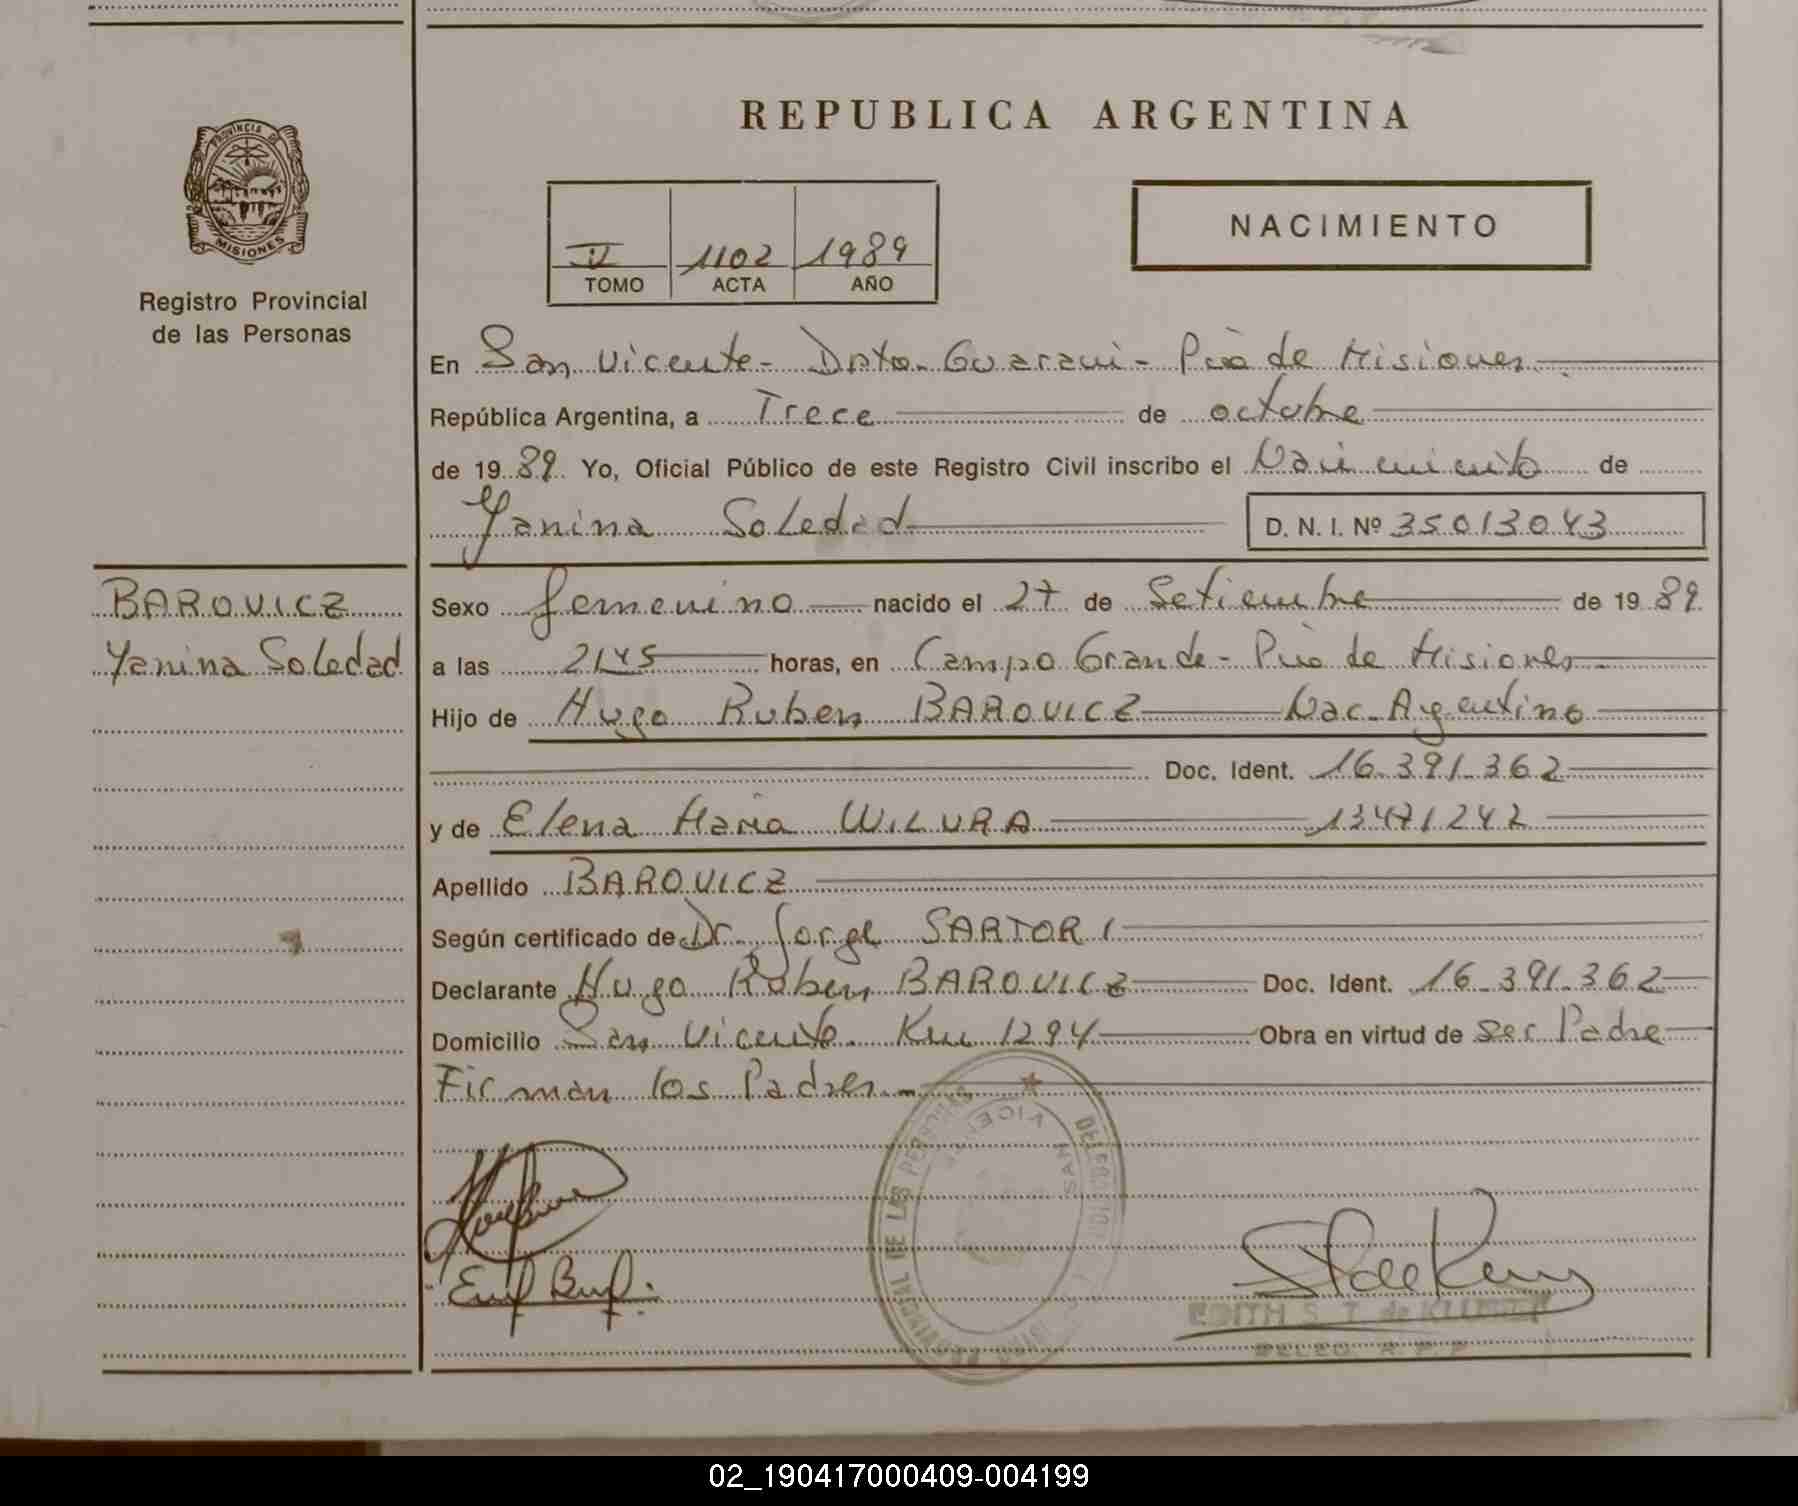 REPUBLICA ARGENTINA
PROVINCIA DE
MISIONES
Registro Provincial
de las Personas
II 1102 1989
TOMO ACTA AÑO
NACIMIENTO
En San Vicente - Dpto. Guarani - Pcia de Misiones
República Argentina, a Trece de octubre
de 1989 Yo, Oficial Público de este Registro Civil inscribo el Nacimiento de
Yanina Soledad D. N. I. Nº 35013043
BAROVICZ
Yanina Soledad
Sexo femenino nacido el 27 de Setiembre de 1989
a las 2145 horas, en Campo Grande - Pcia de Misiones
Hijo de Hugo Ruben BAROVICZ Nac. Argentino
Doc. Ident. 16.391.362
y de Elena Maria WILURA 13471242
Apellido BAROVICZ
Según certificado de Dr. Jorge SARTORI
Declarante Hugo Ruben BAROVICZ Doc. Ident. 16.391.362
Domicilio San Vicente Km 1294 Obra en virtud de ser Padre
Firman los Padres
DELEGACION
SAN VICENTE
PROVINCIAL DE LAS PERSONAS
EDITH S. T. de
DELEG. R. P. P
02_190417000409-004199